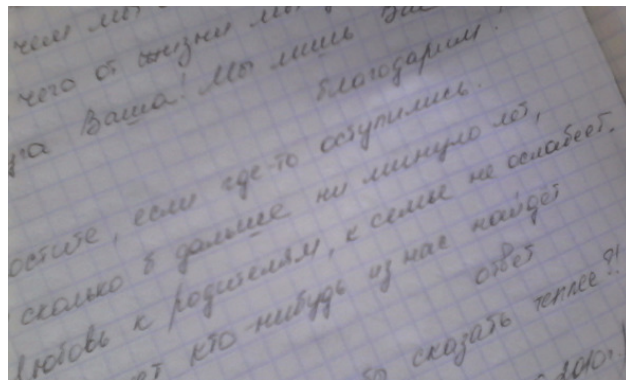 чем мы
чего от жизни мы
Ваша! Мы лишь Вас
благодарим!
остите, если где-то оступились.
сколько б дальше ни минуло лет,
Любовь к родителям, к семье не ослабеет.
ет кто-нибудь из нас найдет
ответ
сказать теплее?!
2010г.)